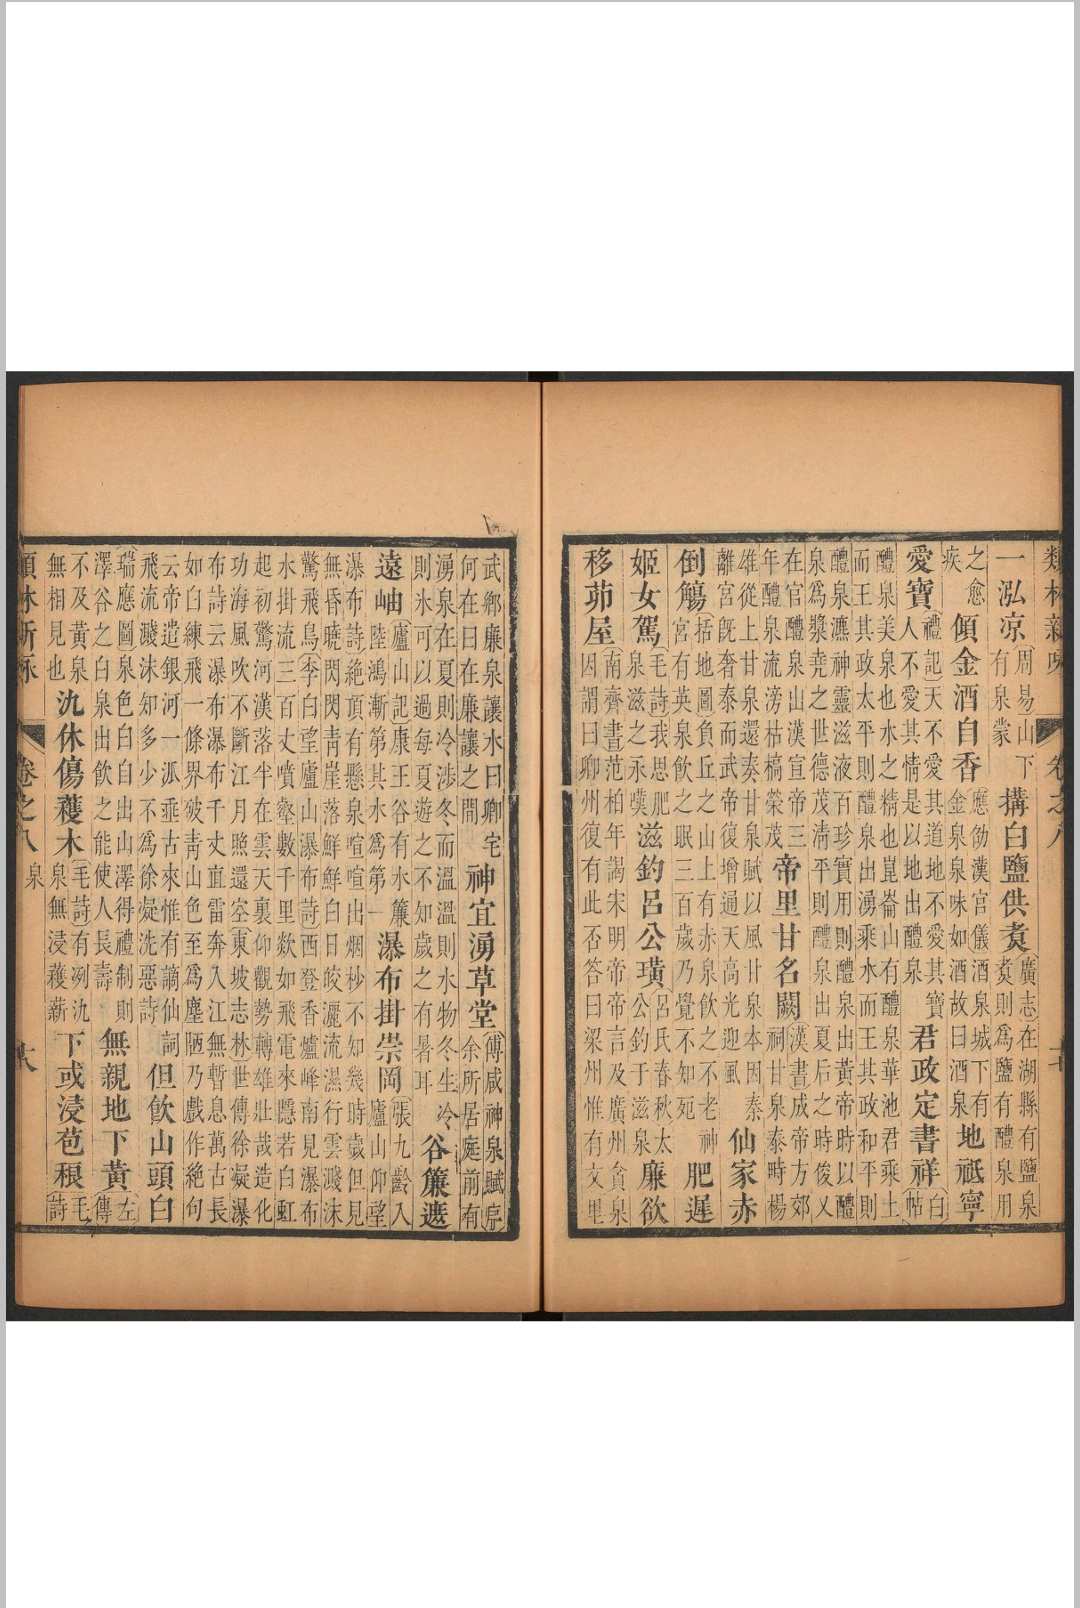 類林新咏 卷之八
一泓凉
周易山下
有泉蒙
搆白鹽供煮
廣志在湖縣有鹽泉
煮則為鹽有醴泉用
之愈
疾
傾金酒自香
應劭漢官儀酒泉城下有
金泉泉味如酒故曰酒泉
地祗寧
愛寶
禮記天不愛其道地不愛其寶
人不愛其情是以地出醴泉
君政定書祥
白
帖
醴泉美泉也水之精也崑崙山有醴泉華池君乘土
而王其政太平則醴泉出湧乘水而王其政和平則
醴泉漉神靈滋液百珍寶用則醴泉出黃帝時以醴
泉爲漿堯之世德茂清平則醴泉出夏后之時俊乂
在官醴泉山漢宣帝三
年醴泉流滂枯槁榮茂
帝里甘名闕
漢書成帝方郊
祠甘泉泰畤楊
雄從上甘泉還奏甘泉賦以風甘泉本因秦
離宮旣奢泰而武帝復增通天高光迎風
仙家赤
倒觴
括地圖負丘之山上有赤泉飲之不老神
宮有英泉飲之眠三百歲乃覺不知死
肥遲
姬女駕
毛詩我思肥
泉滋之永嘆
滋釣呂公璜
呂氏春秋太
公釣于滋泉
廉欲
移茆屋
南齊書范柏年謁宋明帝帝言及廣州貪泉
因謂曰卿州復有此否答曰梁州惟有文里
武鄉廉泉讓水曰卿宅
何在曰在廉讓之間
神宜湧草堂
傅咸神泉賦序
余所居庭前有
湧泉在夏則冷涉冬而溫溫則水物冬生冷
則氷可以過每夏遊之不知歲之有暑耳
谷簾遶
遠岫
廬山記康王谷有水簾
陸鴻漸第其水爲第一
瀑布掛崇岡
張九齡入
廬山仰望
瀑布詩絶頂有懸泉喧喧出烟杪不知幾時歲但見
無昏曉閃閃青崖落鮮鮮白日皎灑流濕行雲濺沫
驚飛鳥李白望廬山瀑布詩西登香爐峰南見瀑布
水掛流三百丈噴壑數千里歘如飛電來隱若白虹
起初驚河漢落半在雲天裏仰觀勢轉雄壯哉造化
功海風吹不斷江月照還空東坡志林世傳徐凝瀑
布詩云瀑布瀑布千丈直雷奔入江無暫息萬古長
如白練飛一條界破青山色至爲塵陋乃戲作絶句
云帝遣銀河一派垂古來惟有謫仙詞
飛流濺沫知多少不爲徐凝洗惡詩
但飲山頭白
瑞應圖泉色白自出山澤得禮制則
澤谷之白泉出飲之能使人長壽
無親地下黃
左
傳
不及黃泉
無相見也
氿休傷穫木
毛詩有冽氿
泉無浸穫薪
下或浸苞稂
毛
詩
類林新咏 卷之八 泉